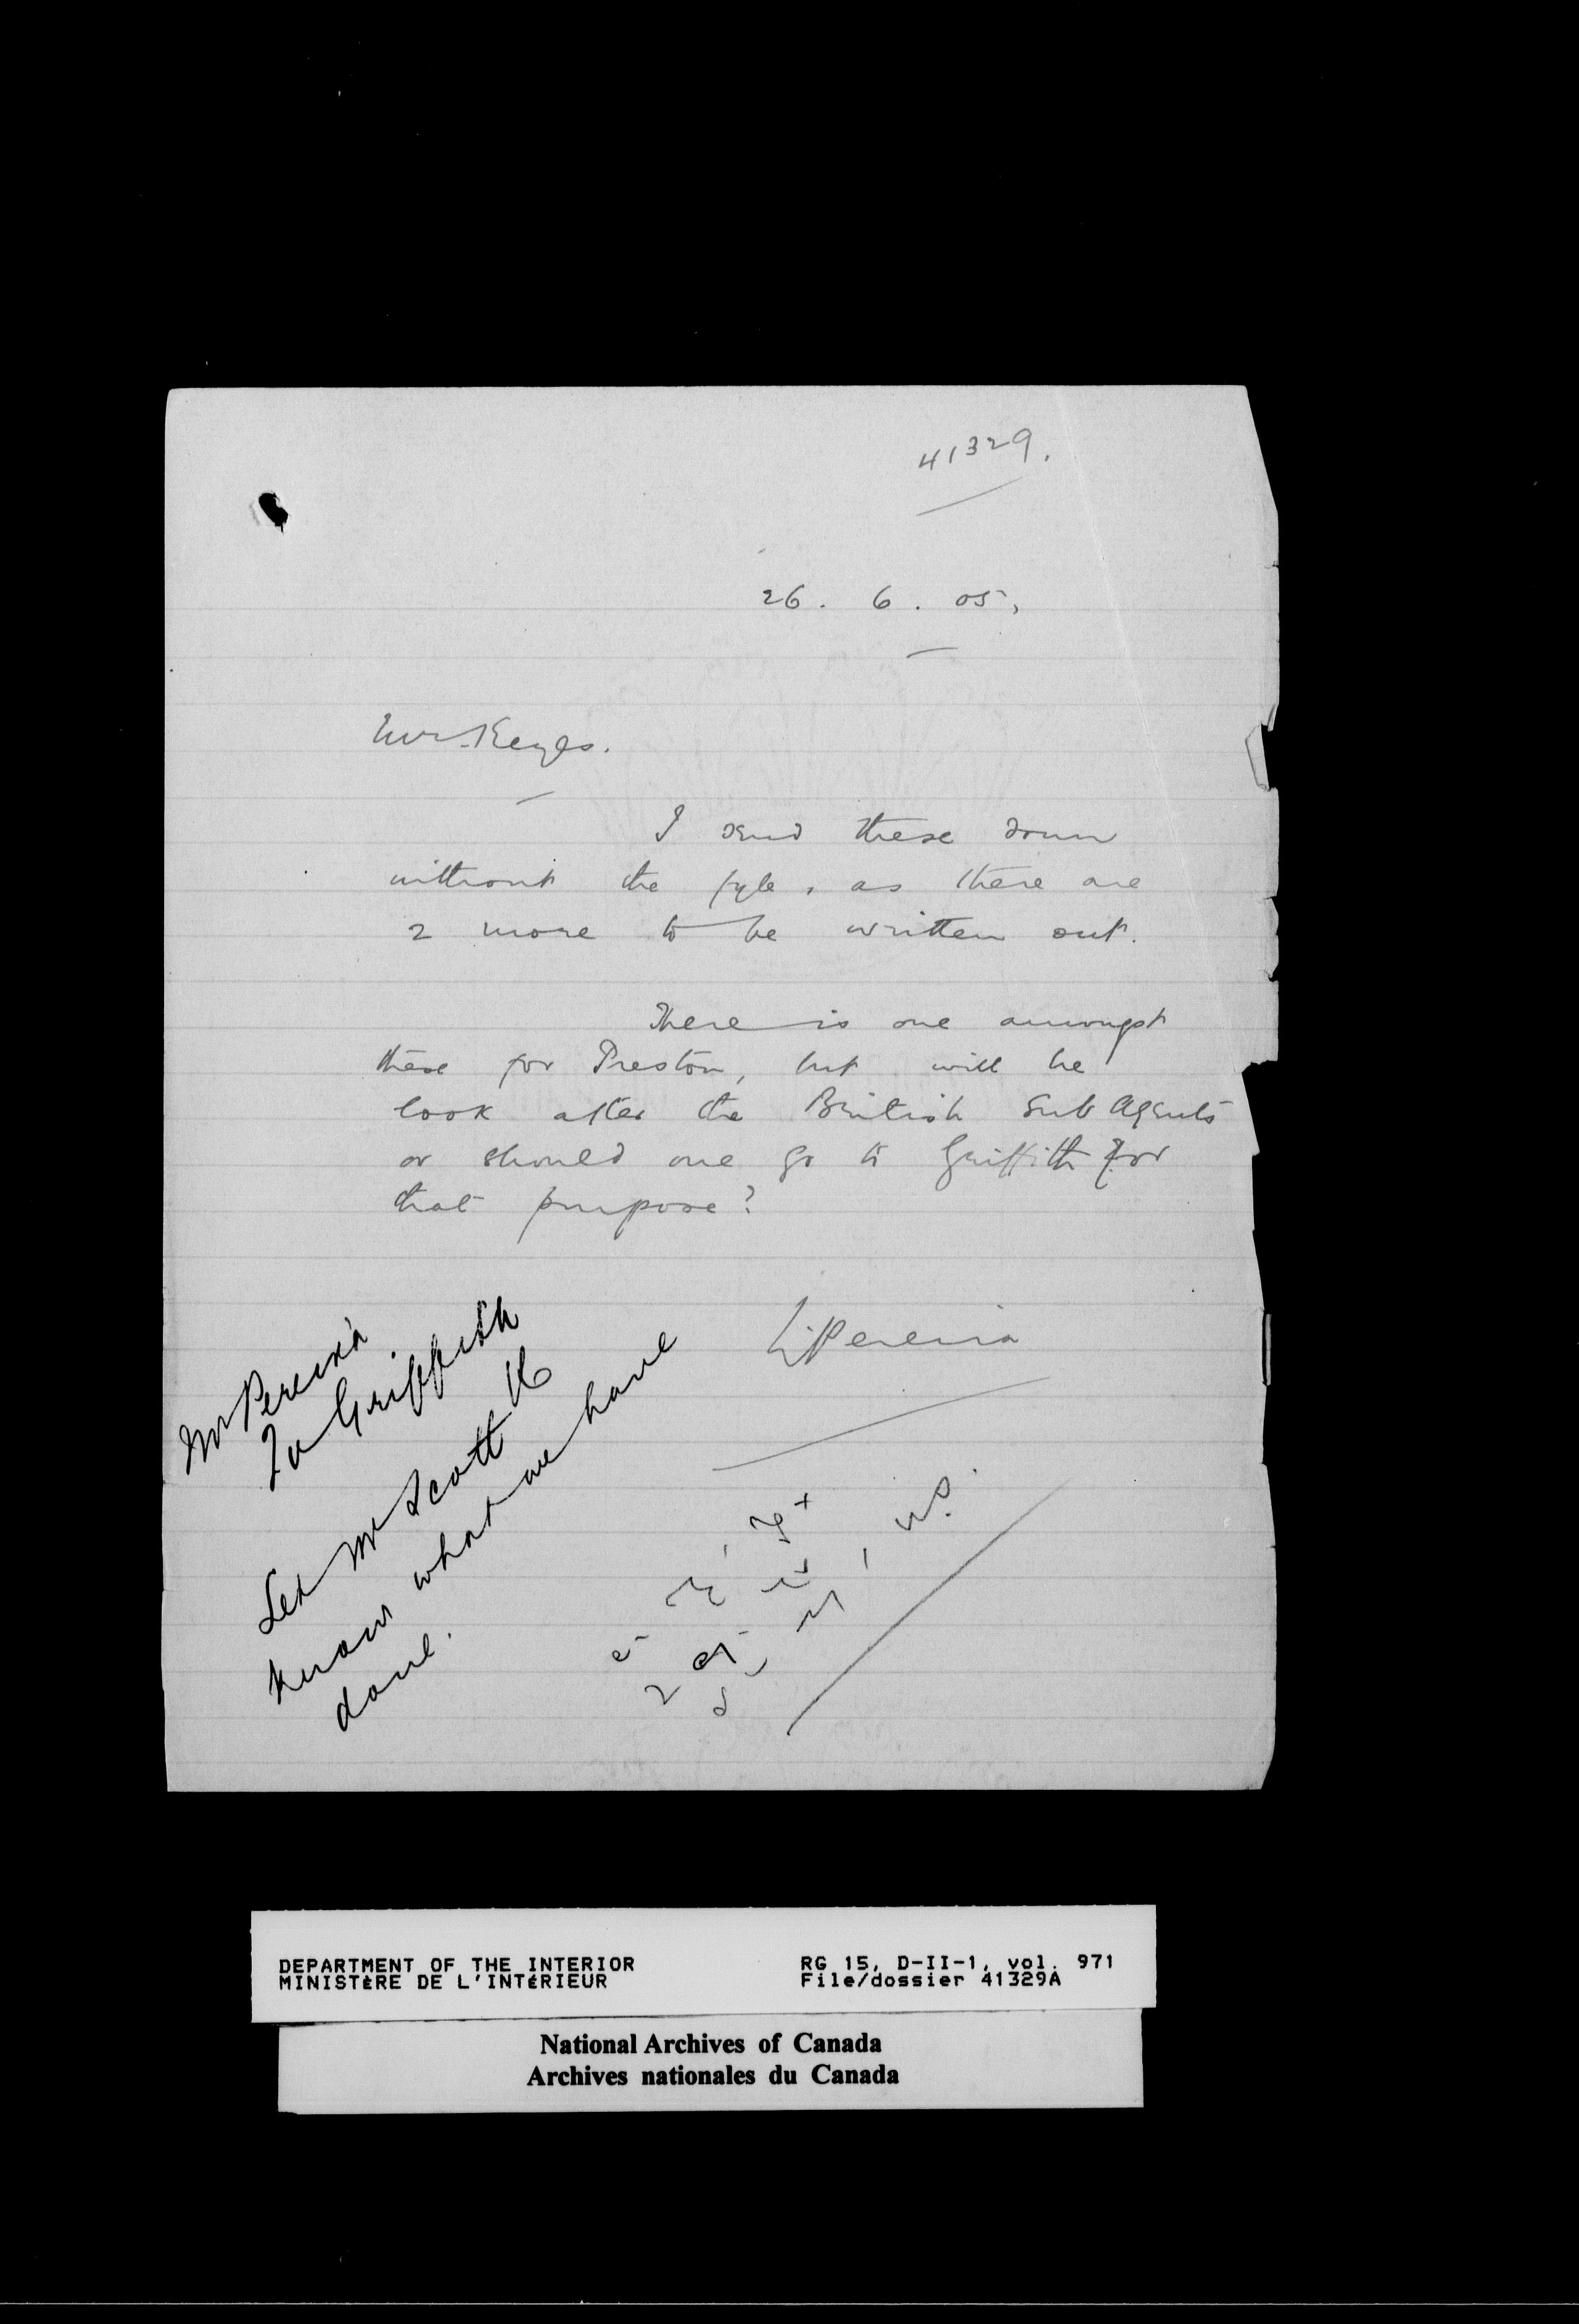 41329.
26. 6. 05,
Mr Keyes.
I send these down
without the fyle, as there are
2 more to be written out.
There is one amongst
these for Preston, but will he
look after the British Sub Agents
or should one go to Griffith for
that purpose?
LPereira
Mr Pereira
To Griffith
K
Let Mr Scott
know what we have
done.
DEPARTMENT OF THE INTERIOR RG 15, D-II-1, vol. 971
MINISTÈRE DE L'INTÉRIEUR File/dossier 41329A
National Archives of Canada
Archives nationales du Canada